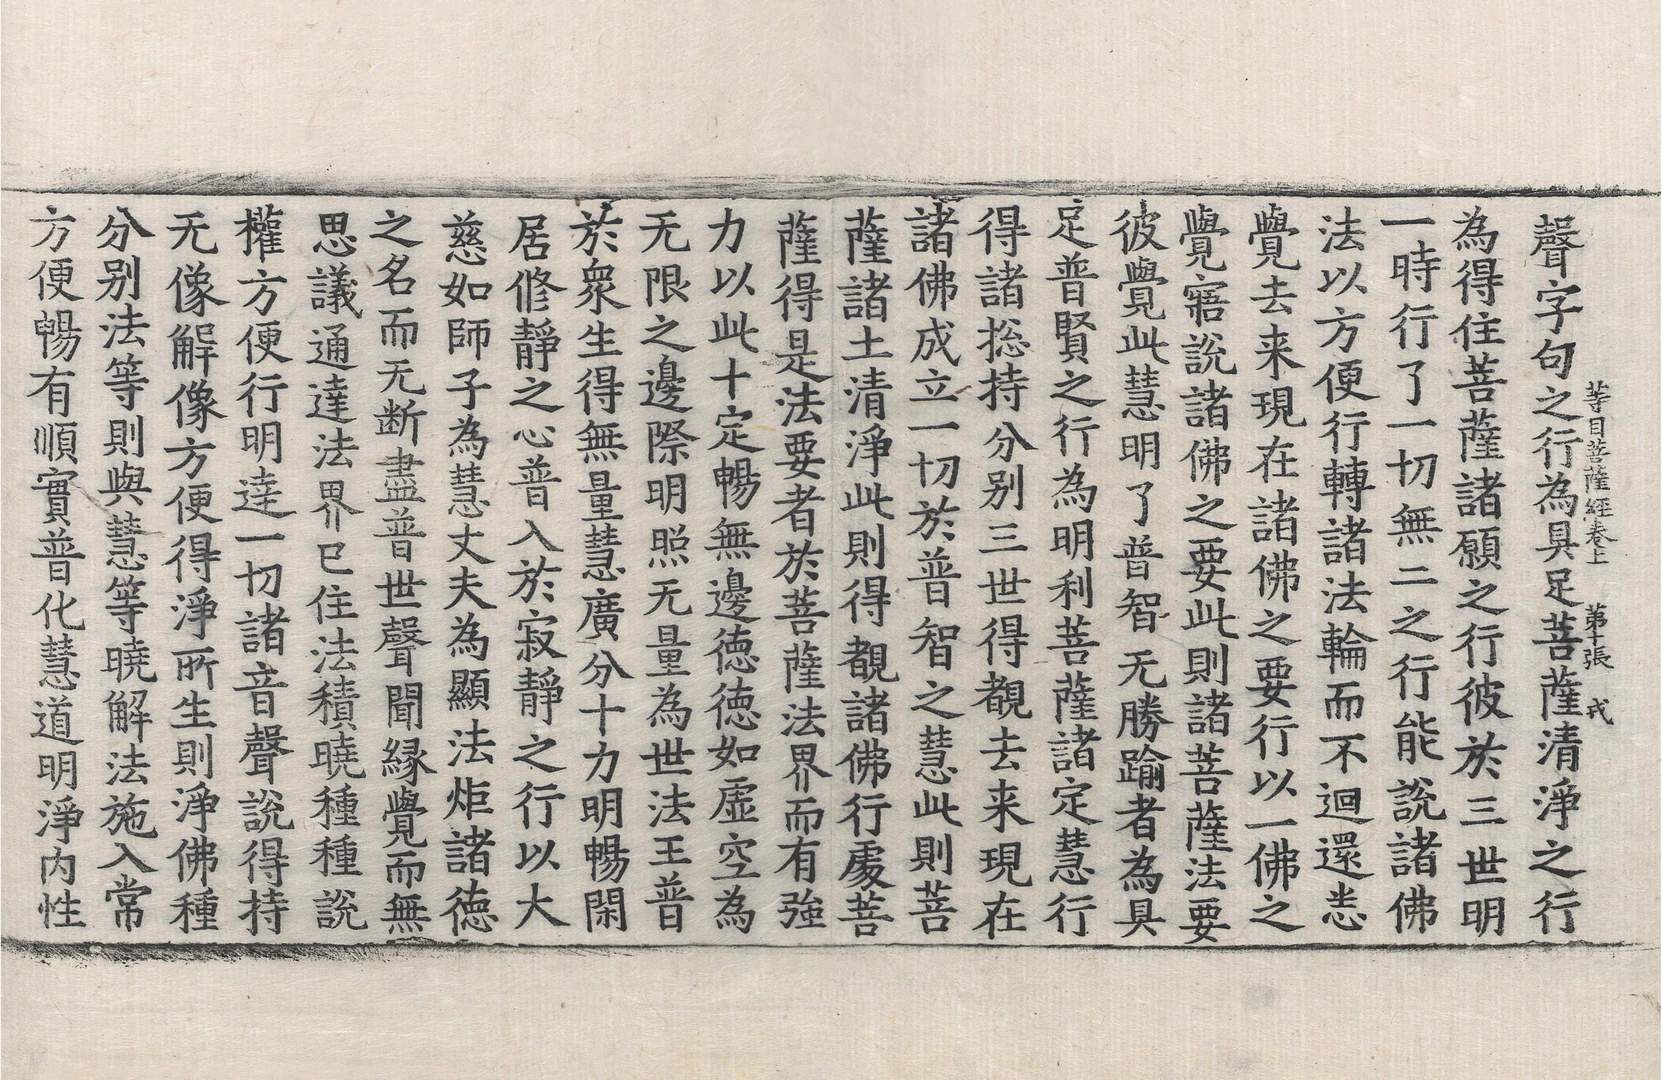 聲字句之行為具足菩薩清淨之行
等目菩薩經卷上 第十張 戎
為得住菩薩諸願之行彼於三世明
一時行了一切無二之行能說諸佛
法以方便行轉諸法輪而不迴還恙
覺去来現在諸佛之要行以一佛之
覺寤說諸佛之要此則諸菩薩法要
彼覺此慧明了普智无勝踰者為具
足普賢之行為明利菩薩諸定慧行
得諸揔持分别三世得覩去来現在
諸佛成立一切於普智之慧此則菩
薩諸土清淨此則得覩諸佛行處菩
薩得是法要者於菩薩法界而有強
力以此十定暢無邊德德如虛空為
无限之邊際明照无量為世法王普
於衆生得無量慧廣分十力明暢閑
居修靜之心普入於寂靜之行以大
慈如師子為慧丈夫為顯法炬諸德
之名而无断盡普世聲聞緣覺而無
思議通達法界已住法積曉種種說
權方便行明達一切諸音聲說得持
无像解像方便得淨所生則淨佛種
分别法等則與慧等曉解法施入常
方便暢有順實普化慧道明淨内性